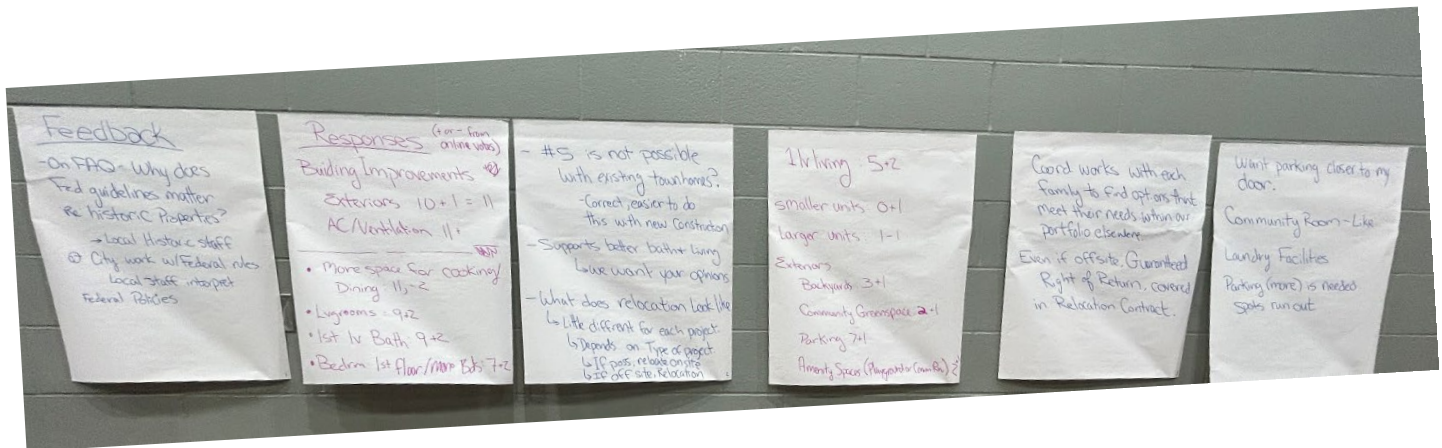 Feedback
- On FAQ - Why does
Fed guidelines matter
Re historic Properties?
→ Local Historic staff
City work w/Federal rules
Local staff interpret
Federal Policies
Responses (+ or - from
online votes)
Buiding Improvements
Exteriors 10 + 1 = 11
AC/Ventilation 11
• More space for cooking/
Dining 11, -2
• Lvgrooms = 9+2
• 1st lv Bath 9+2
• Bedrm 1st floor/more Bds 7+2
- #5 is not possible
with existing townhomes?
- Correct, easier to do
this with new Construction
- Supports better bath + Living
↳ we want your opinions
- What does relocation look like
↳ Little diffrent for each project
↳ Depends on Type of project
↳ If poss, relocate onsite
↳ If off site, Relocation
1 lv living 5+2
smaller units 0+1
Larger units 1-1
Exteriors
Backyards 3+1
Community Greenspace 2+1
Parking 7+1
Amenity Spaces (Playground or
Coord works with each
family to find options that
meet their needs within our
portfolio elsewhere
Even if offsite, Guaranteed
Right of Return, covered
in Relocation Contract.
Want parking closer to my
door.
Community Room - Like
Laundry Facilities
Parking (more) is needed
spots run out